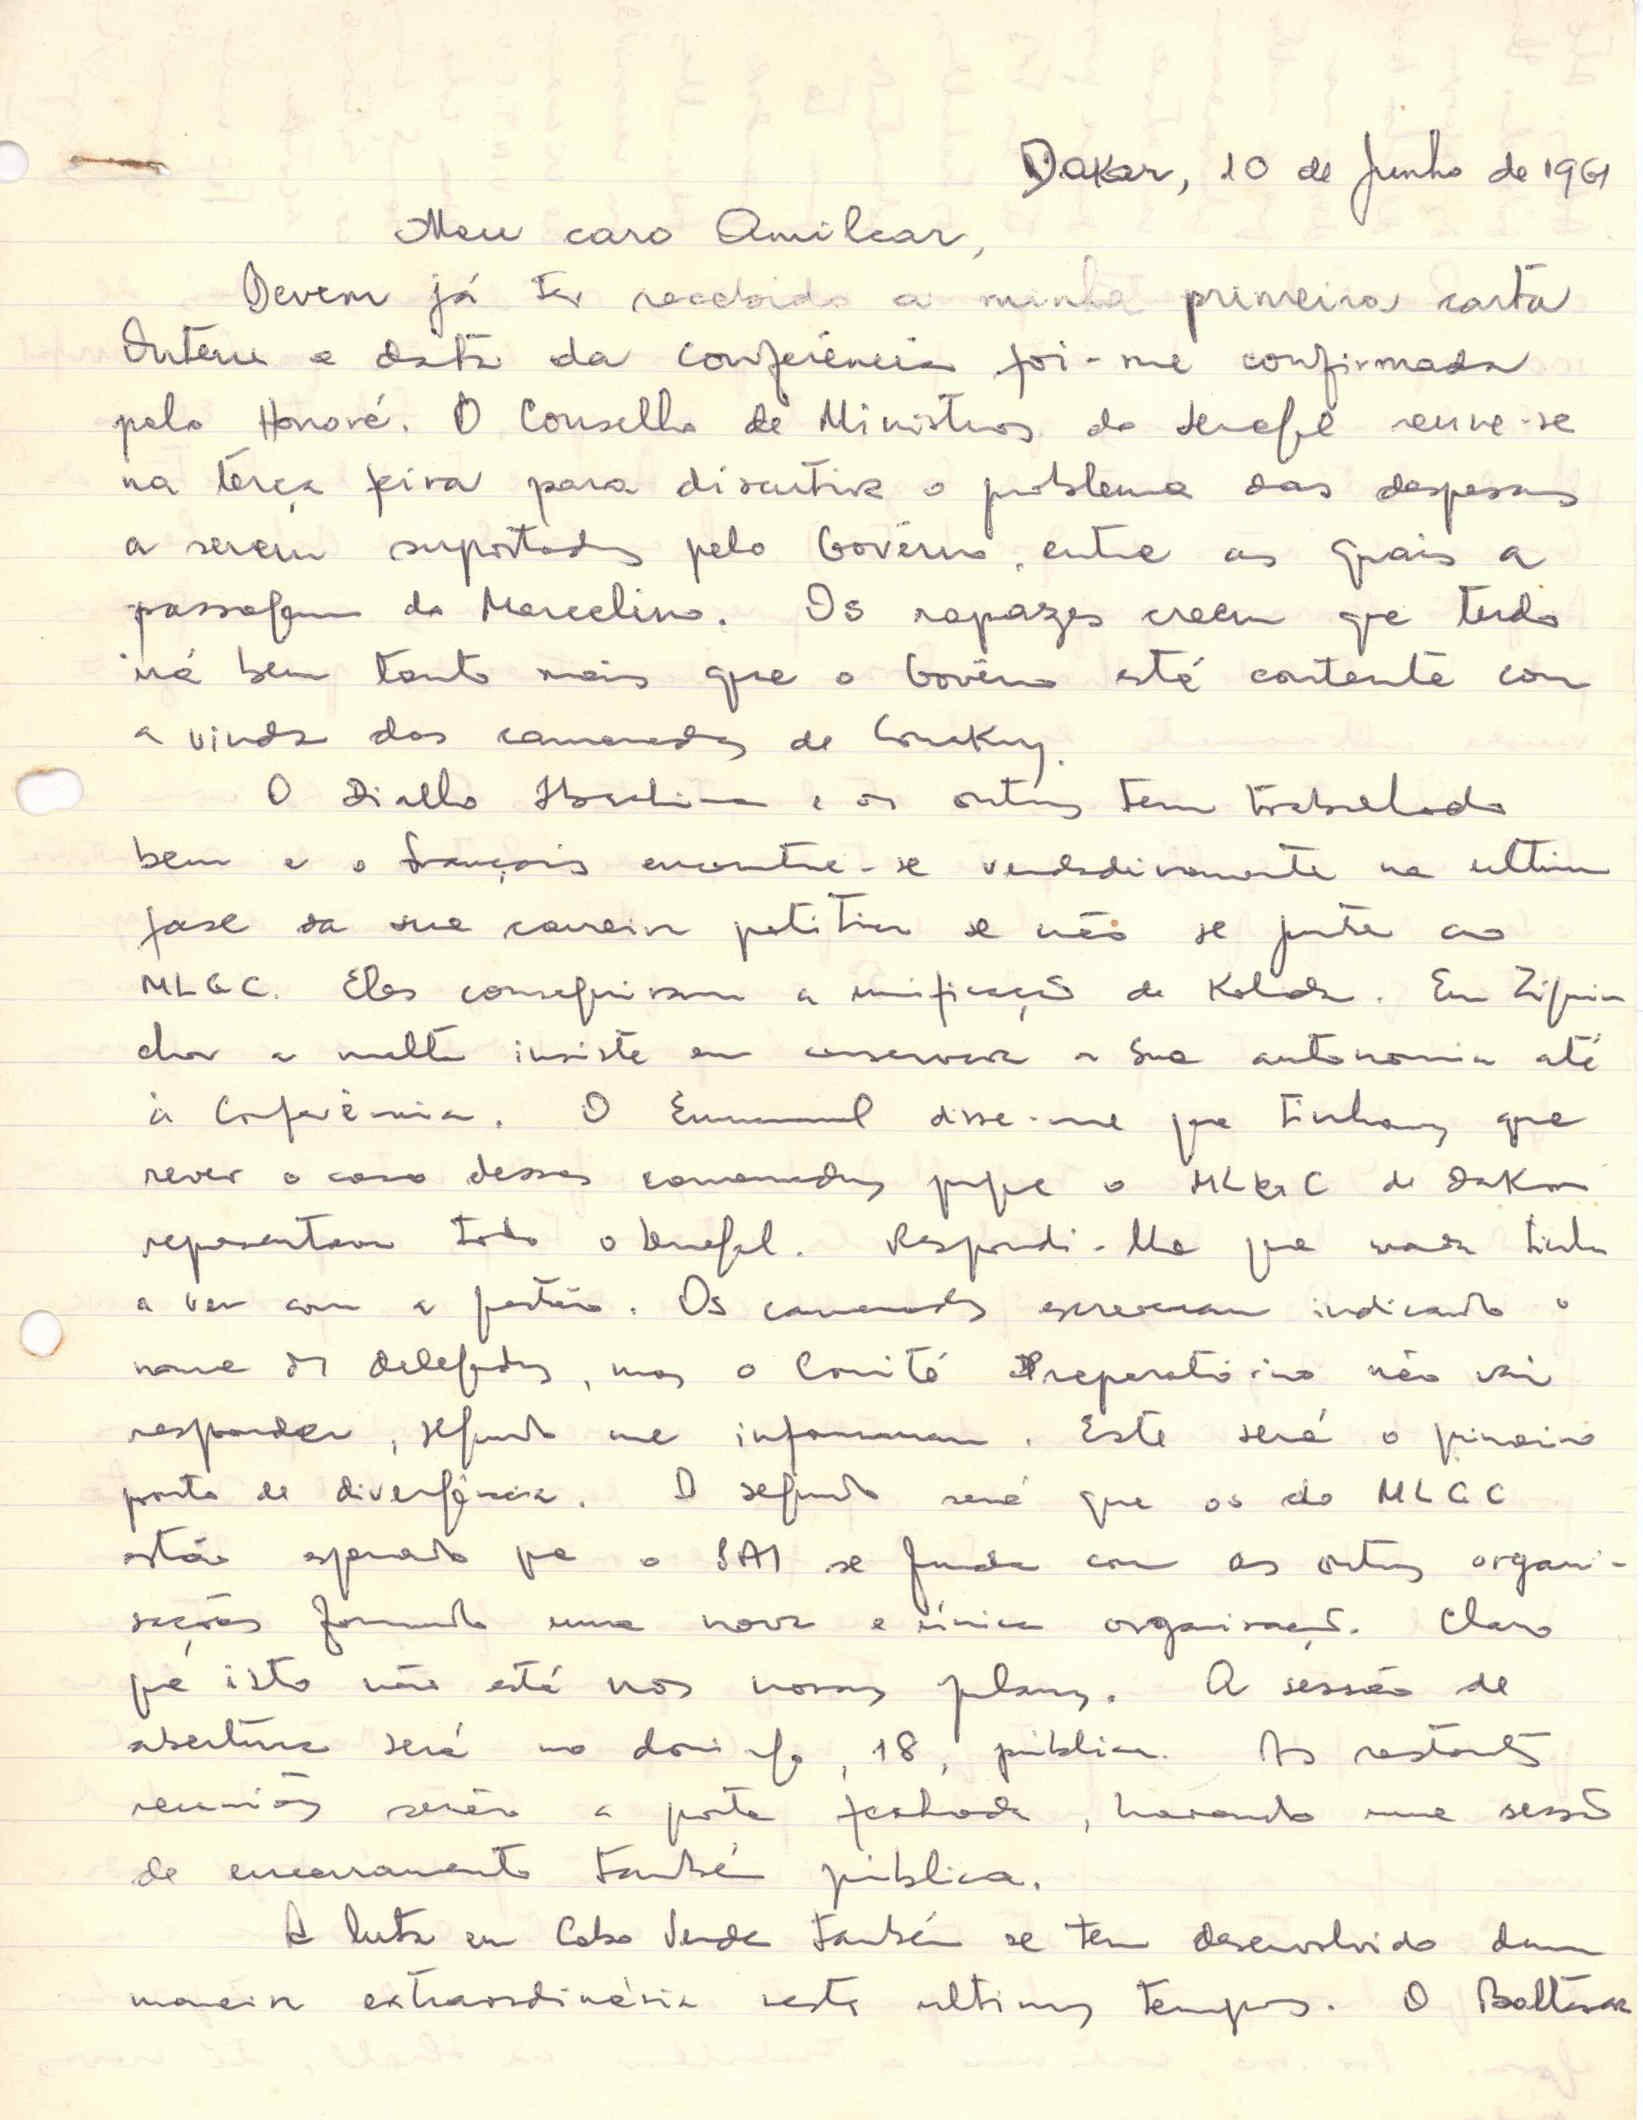 Dakar, 10 de Junho de 1961
Meu caro Amilcar,
Devem já ter recebido a minha primeira carta
Ontem a data da Conferência foi-me confirmada
pelo Honoré. O Conselho de Ministros do Senegal reune-se
na terça feira para discutir o problema das despesas
a serem suportadas pelo Govêrno, entre as quais a
passagem do Marcelino. Os rapazes creem que tudo
irá bem tanto mais que o Govêrno está contente com
a vinda dos camaradas de Conakry.
O Diallo Ibrahima e os outros tem trabalhado
bem e o François encontra-se verdadeiramente na ultima
fase da sua carreira politica se não se junta ao
MLGC. Eles conseguiram a unificação de Kolda. Em Ziguin
chor a malta insiste em conservar a sua autonomia até
à Conferência. O Emmanuel disse-me que tinhamos que
rever o caso desses camaradas porque o MLGC de Dakar
representava todo o Senegal. Respondi-lhe que nada tinha
a ver com a questão. Os camaradas escreveram indicando o
nome dos delegados, mas o Comité Preparatório não vai
responder, segundo me informaram. Este será o primeiro
ponto de divergência. O segundo será que os do MLGC
estão esperando que o PAI se funda com as outras organi-
sações formando uma nova e única organisação. Claro
que isto não está nos nossos planos. A sessão de
abertura será no domingo, 18, pública. As restantes
reuniões serão a porta fechada, havendo uma sessão
de encerramento também pública.
A luta em Cabo Verde também se tem desenvolvido duma
maneira extraordinária nestes ultimos tempos. O Baltasar